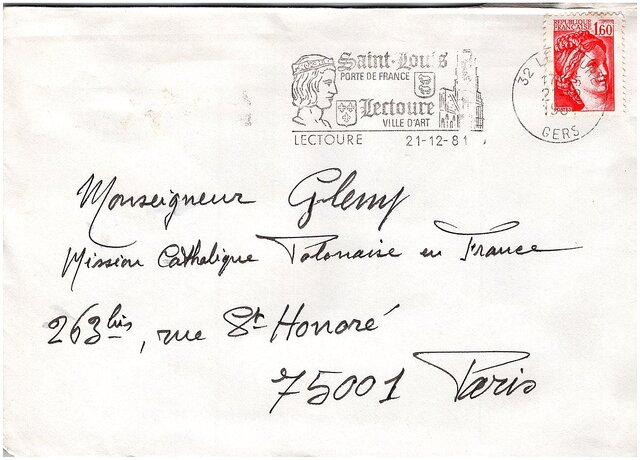 REPUBLIQUE FRANCAISE
1,60
Saint-Louis
PORTE DE FRANCE
Lectoure
VILLE D'ART
LECTOURE 21-12-81
32
GERS
Monseigneur Glemp
Mission Catholique Polonaise en France
263 bis, rue St Honoré
75001 Paris